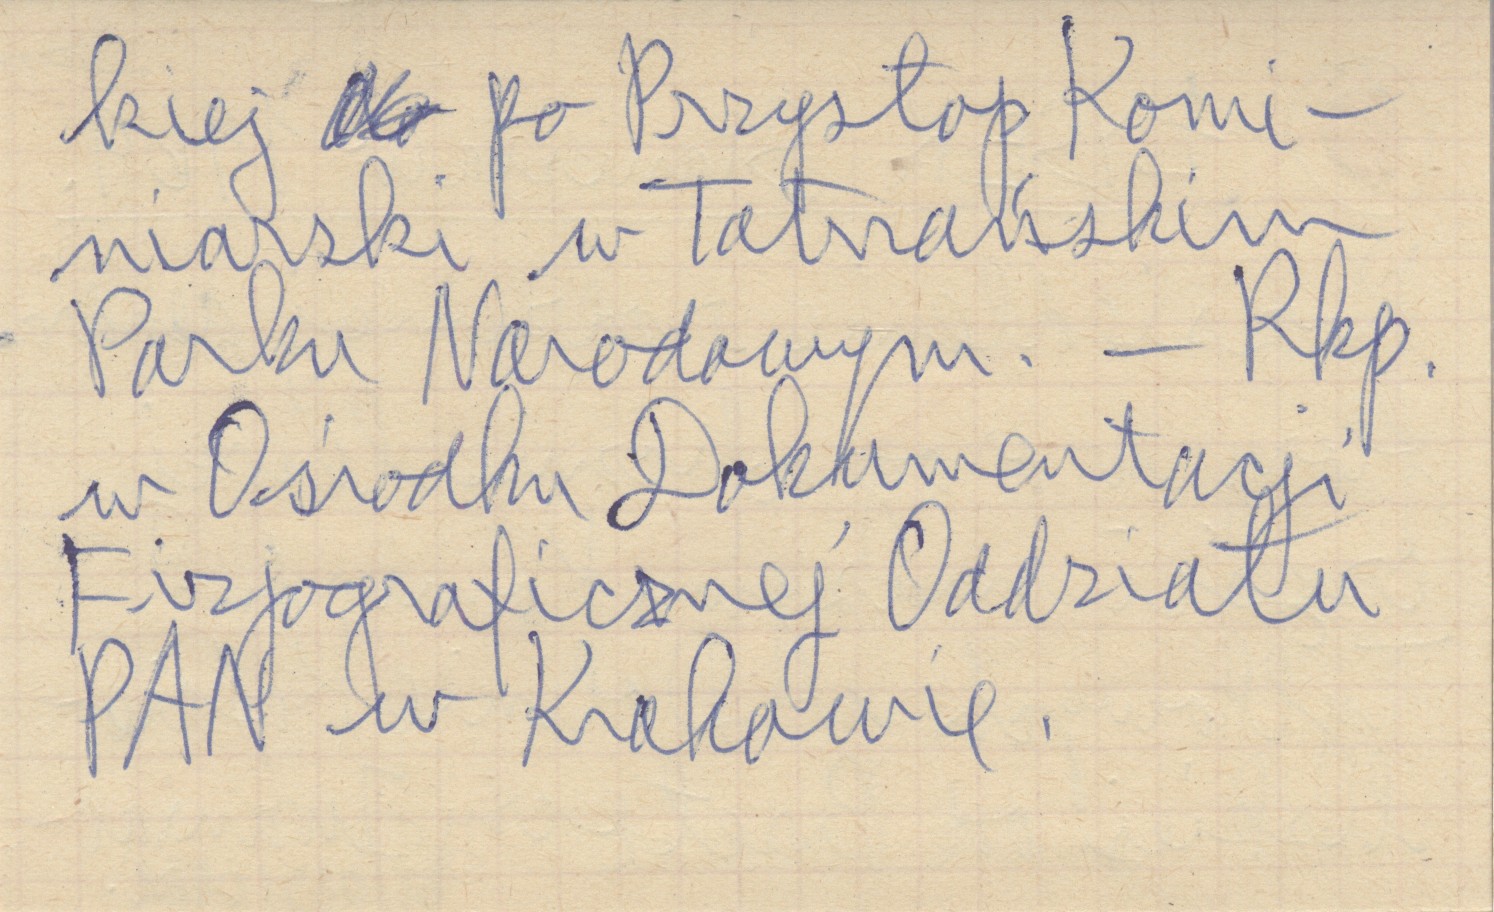 kiej po Przysłop Komi-
niarski w Tatrzańskim
Parku Narodowym. — Rkp.
w Ośrodku Dokumentacji
Fizjograficznej Oddziału
PAN w Krakowie.